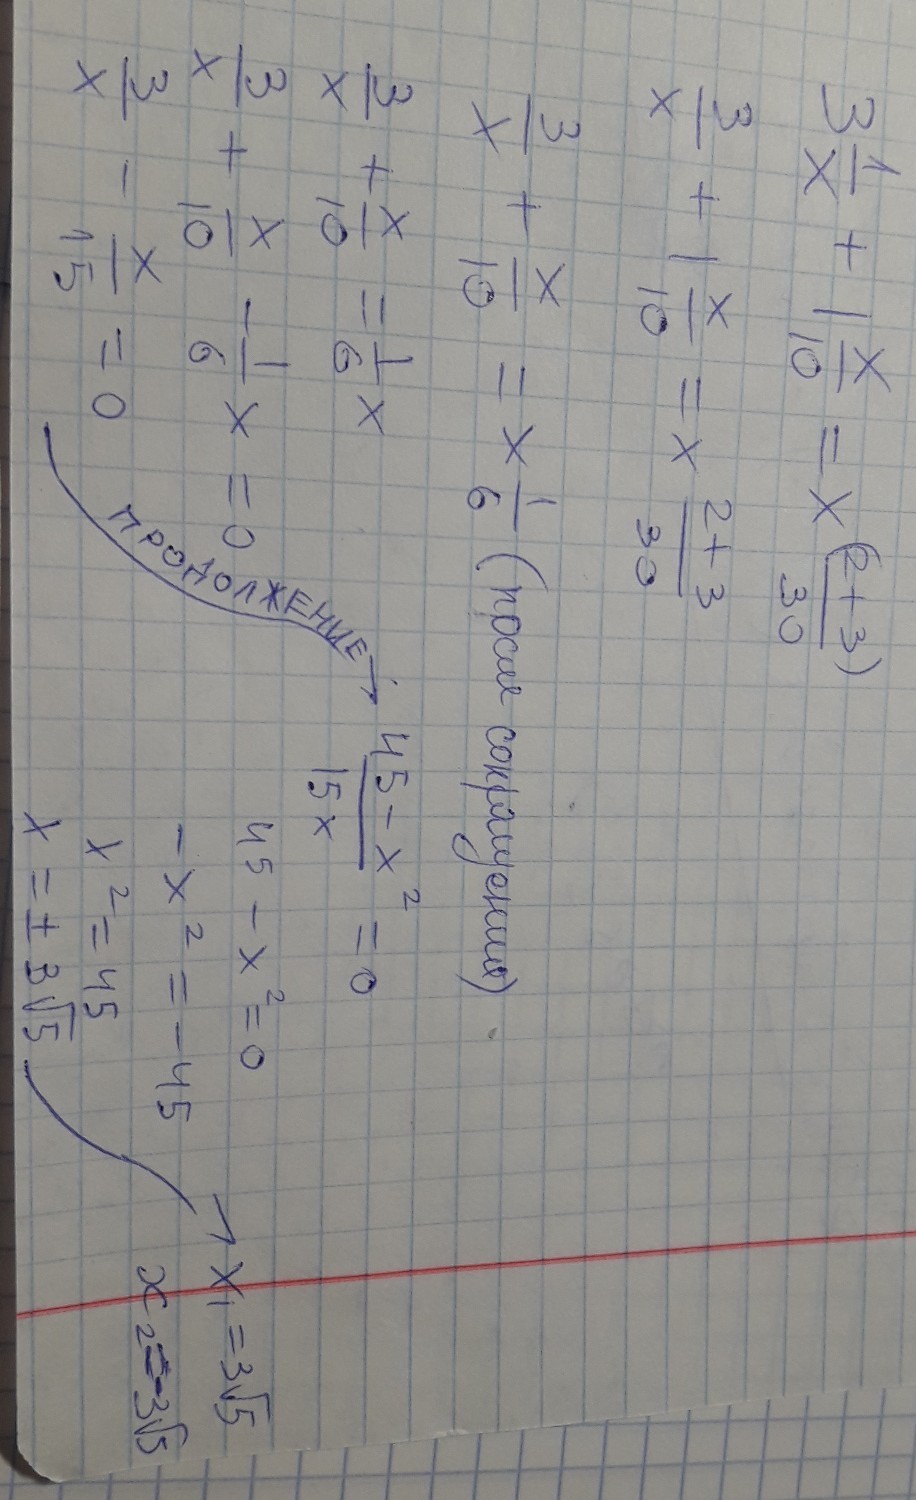 3 1/x + 1 x/10 = x (2+3)/30
3/x + 1 x/10 = x 2+3/30
3/x + x/10 = x 1/6 (после сокращения)
3/x + x/10 = 1/6 x
3/x + x/10 - 1/6 x = 0
3/x - x/15 = 0
ПРОДОЛЖЕНИЕ
45-x²/15x = 0
45 - x² = 0
-x² = -45
x² = 45
x = ± 3√5
x₁ = 3√5
x₂ = -3√5